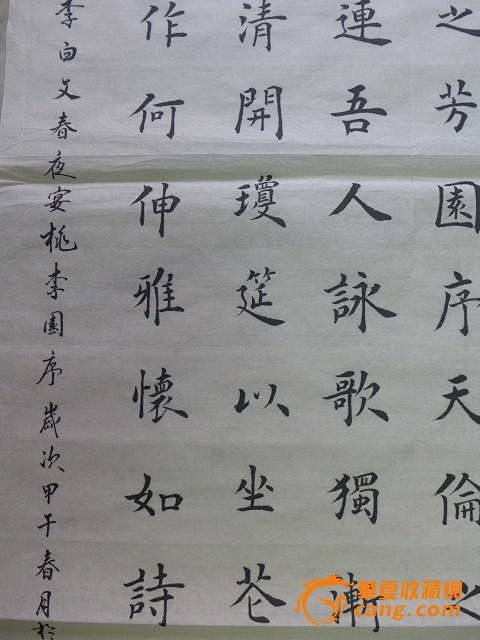 之芳園序天倫之
連吾人詠歌獨慚
清開瓊筵以坐花
作何伸雅懷如詩
李白文春夜宴桃李園序歲次甲午春月於
華夏收藏網
cang.com